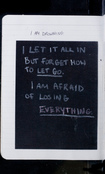 I AM DROWNING
I LET IT ALL IN
BUT FORGET HOW
TO LET GO.
I AM AFRAID
OF LOSING
EVERYTHING